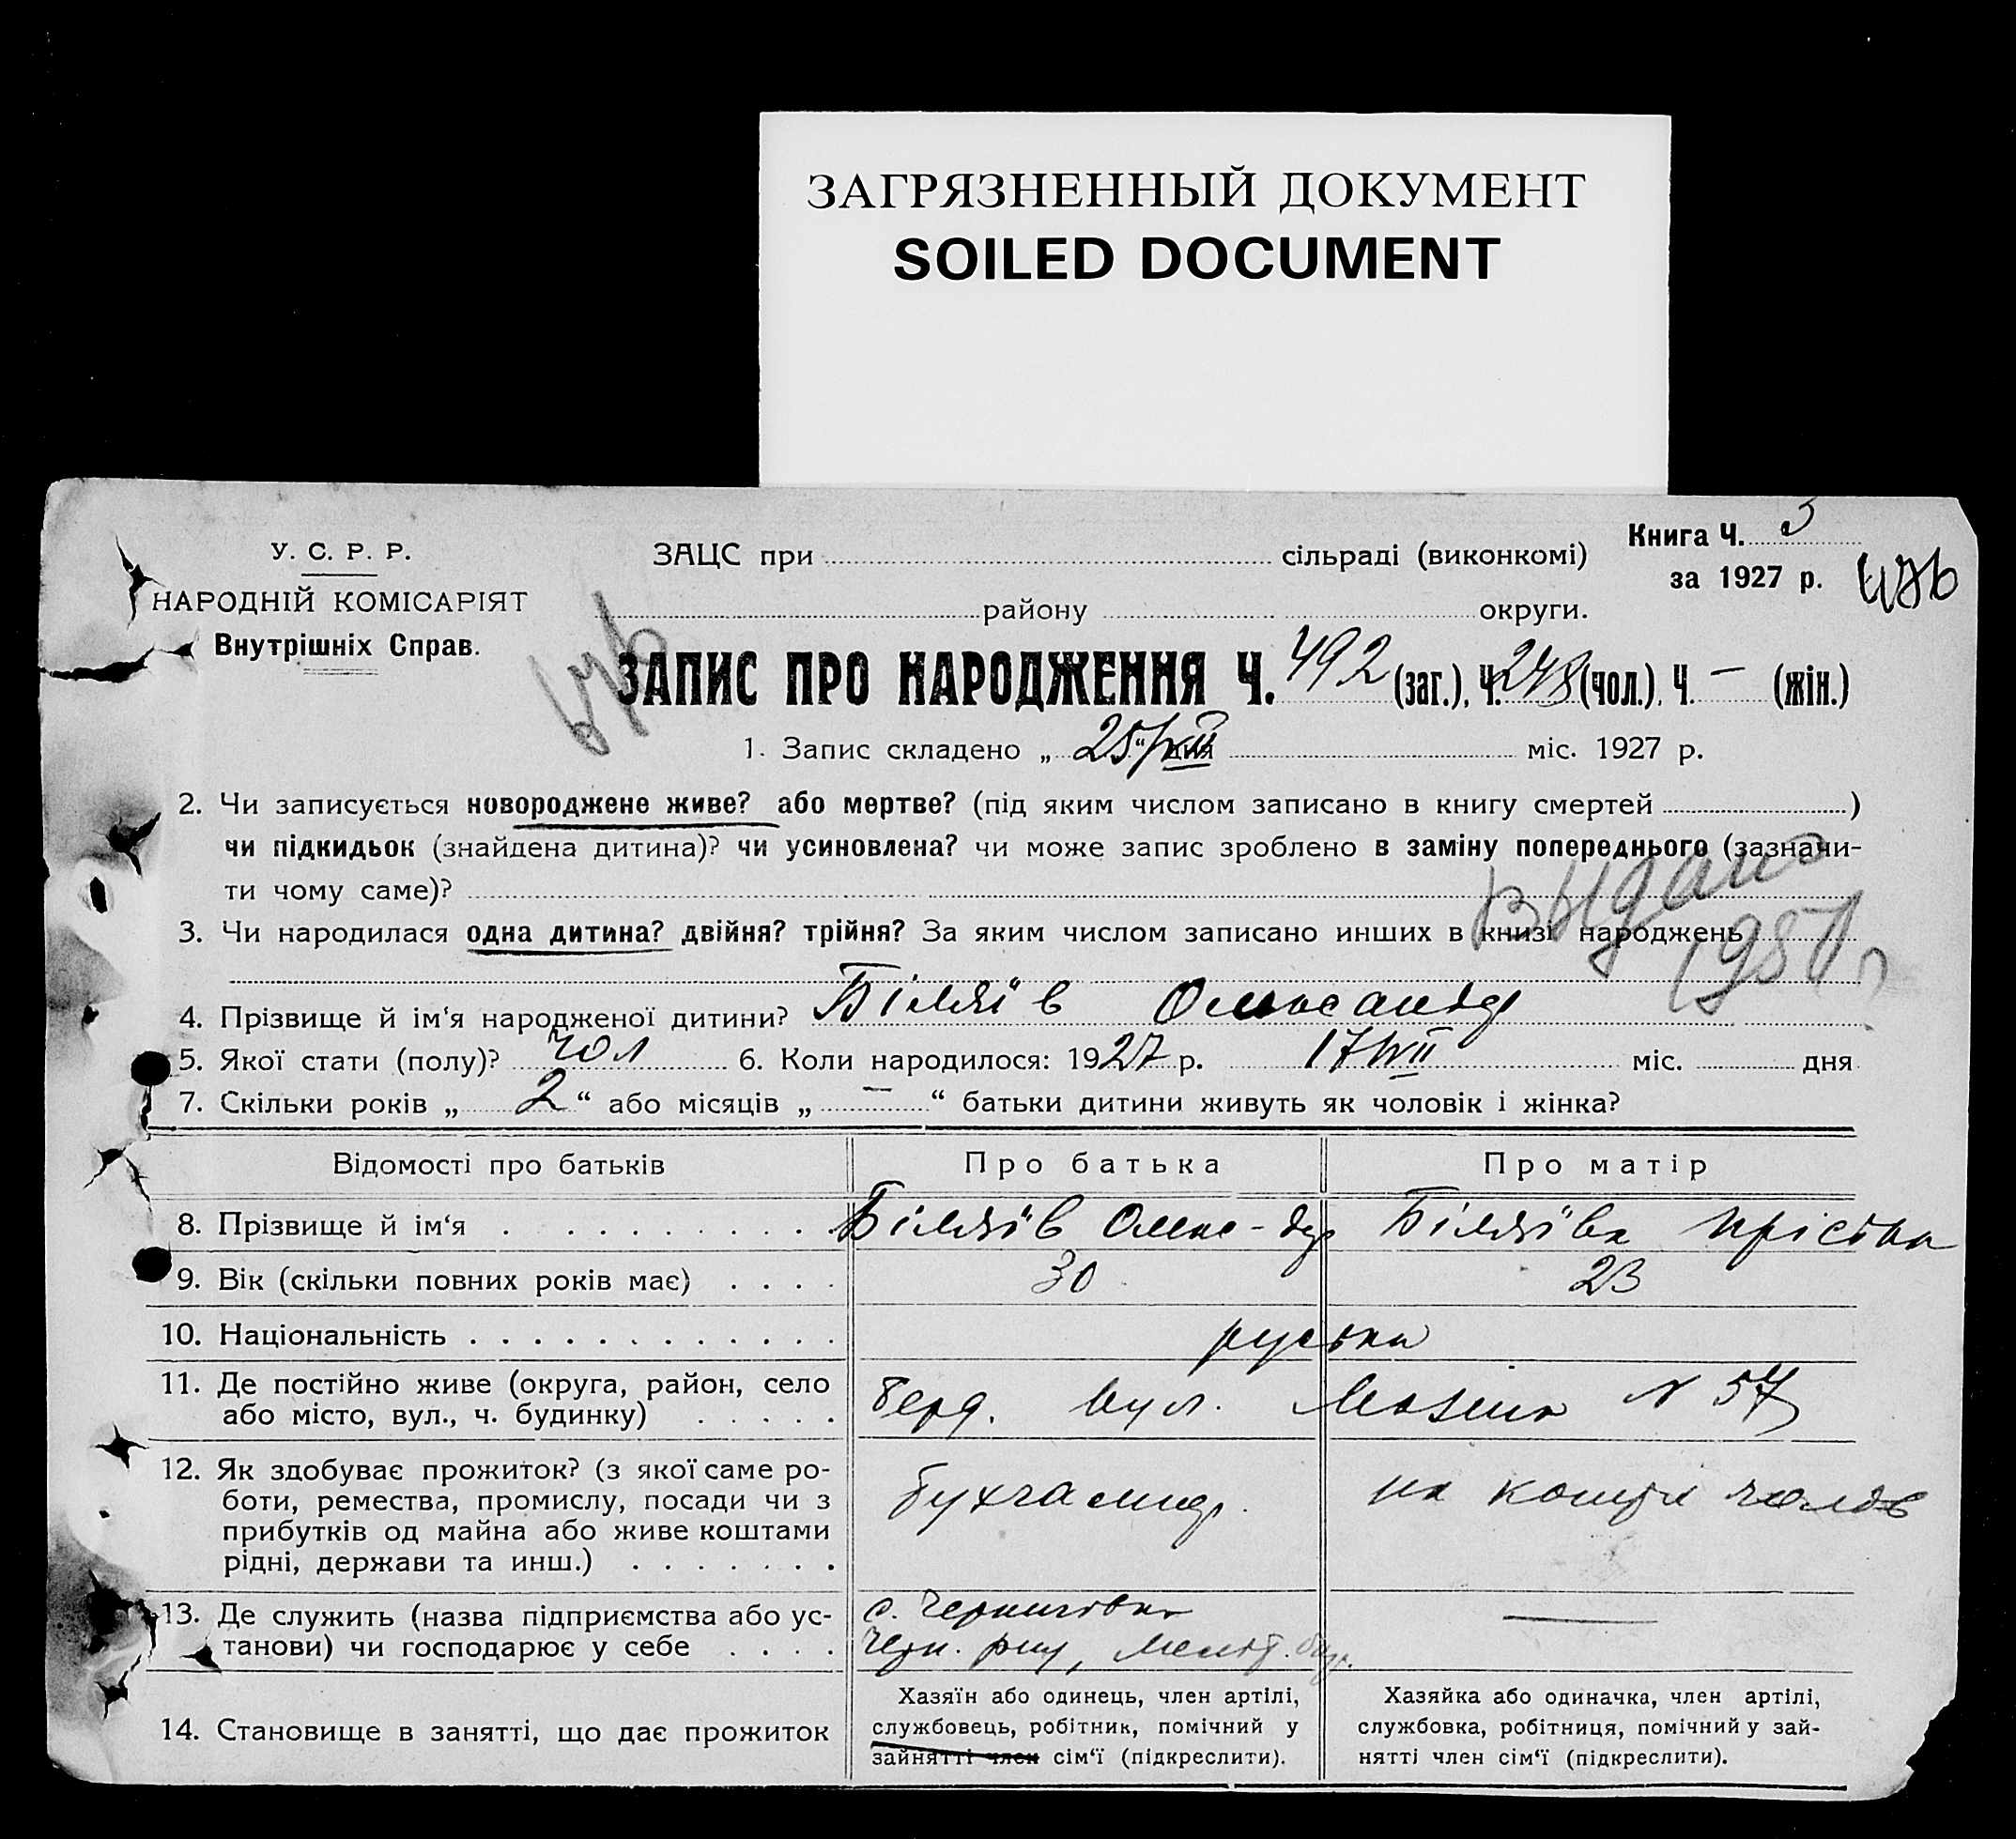 ЗАГРЯЗНЕННЫЙ ДОКУМЕНТ
SOILED DOCUMENT
У. С. Р. Р.
НАРОДНІЙ КОМІСАРІЯТ
Внутрішніх Справ.
ЗАЦС при сільраді (виконкомі)
району округи.
Книга Ч. 3
за 1927 р.
ЗАПИС ПРО НАРОДЖЕННЯ Ч. 492 (заг.), Ч. 248 (чол.), Ч. — (жін.)
1. Запис складено „ 25/VIII “ дня міс. 1927 р.
2. Чи записується новороджене живе? або мертве? (під яким числом записано в книгу смертей )
чи підкидьок (знайдена дитина)? чи усиновлена? чи може запис зроблено в заміну попереднього (зазначи-
ти чому саме)?
Выдано
3. Чи народилася одна дитина? двійня? трійня? За яким числом записано инших в книзі народжень
4. Прізвище й ім‘я народженої дитини? Біляїв Олександр
5. Якої стати (полу)? чол 6. Коли народилося: 1927 р. 17/VII міс. дня
7. Скільки років „ 2 “ або місяців „ — “ батьки дитини живуть як чоловік і жінка?
Відомості про батьків Про батька Про матір
8. Прізвище й ім‘я Біляїв Олекс-др Біляїва
9. Вік (скільки повних років має) 30 23
10. Національність руська
11. Де постійно живе (округа, район, село
або місто, вул., ч. будинку) Берд. вул. N 57
12. Як здобуває прожиток? (з якої саме ро-
боти, ремества, промислу, посади чи з
прибутків од майна або живе коштами
рідні, держави та инш.)
бухгалтер. на кошти чолов
13. Де служить (назва підприємства або ус-
танови) чи господарює у себе
с. Чернигівка
Черн. рну, Меліт.
14. Становище в занятті, що дає прожиток
Хазяїн або одинець, член артілі,
службовець, робітник, помічний у
зайнятті член сім‘ї (підкреслити).
Хазяйка або одиначка, член артілі,
службовка, робітниця, помічний у зай-
нятті член сім‘ї (підкреслити).